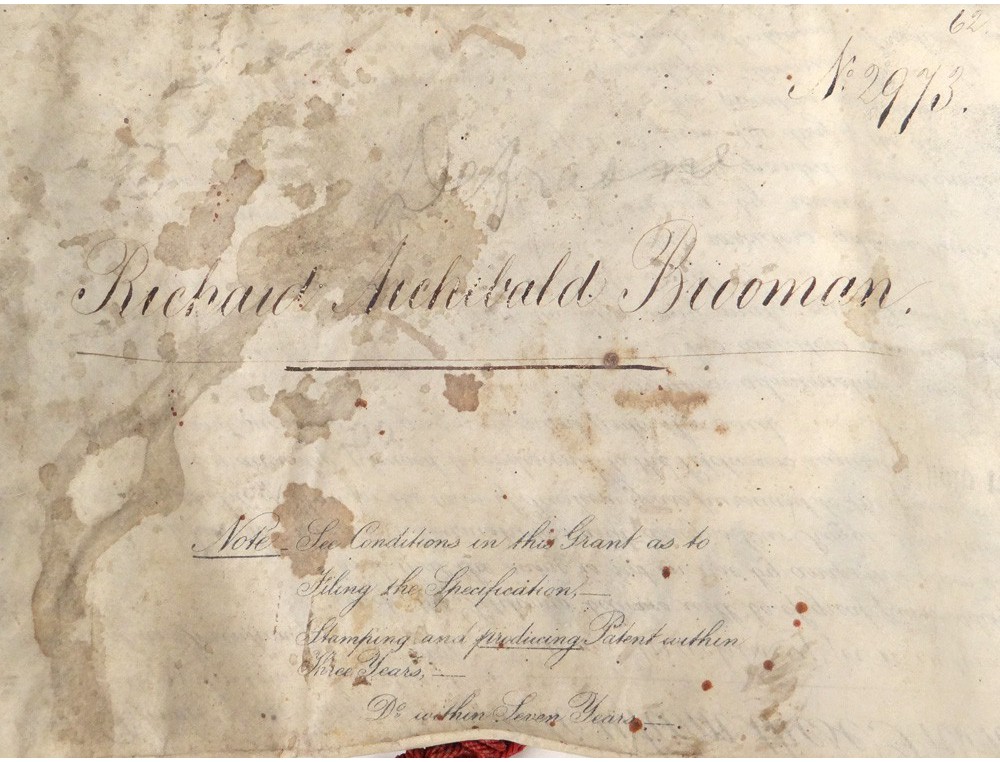 62.
No. 2973.
Richard Archibald Brooman.
Note - See Conditions in this Grant as to
Filing the Specification, —
Stamping and producing Patent within
Three Years, —
Do. within Seven Years, —